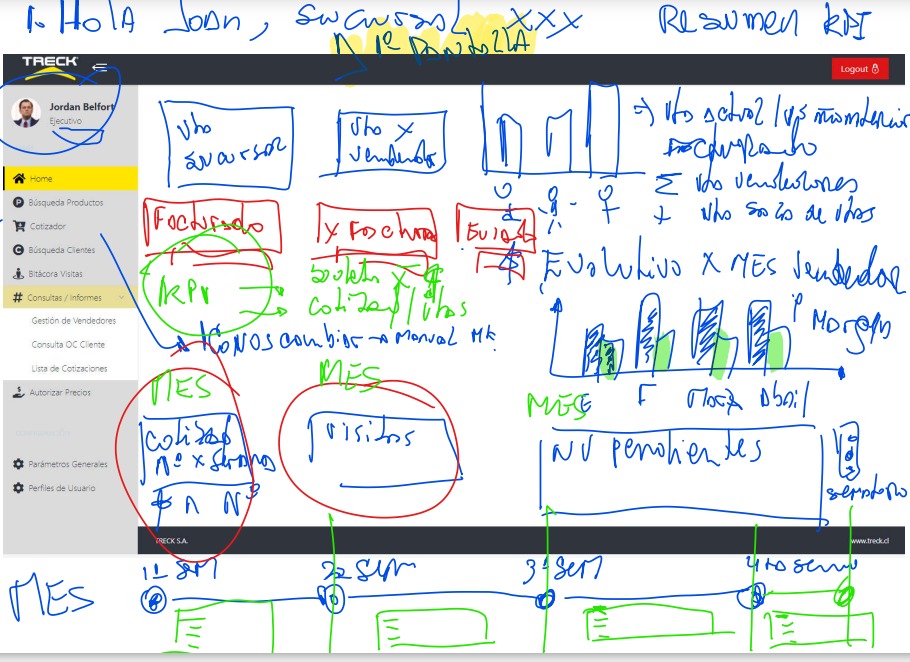 Hola Joan, sucursal xxx Resumen KPI
1º Pantalla
TRECK
Logout
Jordan Belfort
Ejecutivo
Home
Búsqueda Productos
Cotizador
Búsqueda Clientes
Bitácora Visitas
Consultas / Informes
Gestión de Vendedores
Consulta OC Cliente
Lista de Cotizaciones
Autorizar Precios
Parámetros Generales
Perfiles de Usuario
Vta sucursal
Vta x vendedor
=> Vta actual / vs
Σ Vta vendedores
+ Vta
Facturado
x Facturar
KPI
boleta x
cotizas / Vtas
Evolutivo x MES Vendedor
Margen
Iconos cambiar → Manual Mk
MES
MES
MES
E F Marz Abril
Cotizas
Nº x
$ Λ Nº
Visitas
NV pendientes
semaforo
TRECK S.A.
www.treck.cl
MES
1º SEM
2º SEM
3º SEM
4to sem